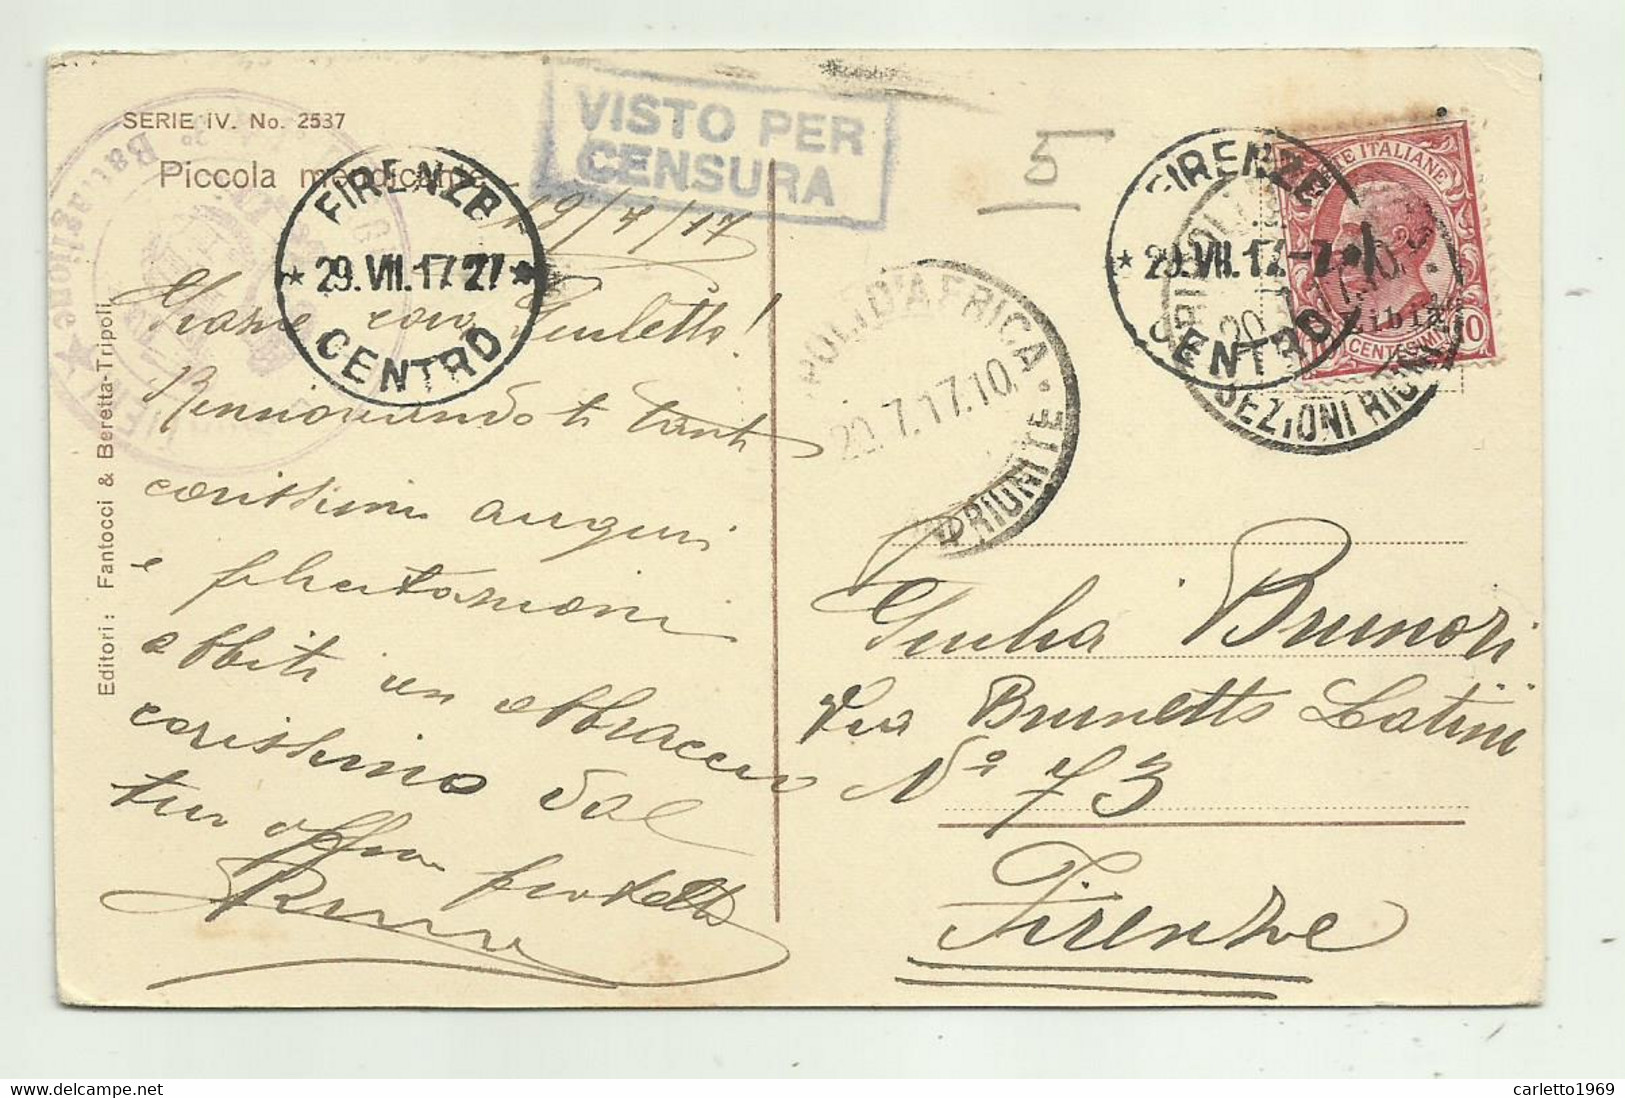 SERIE IV. No. 2537
Piccola mendicante
VISTO PER
CENSURA
5
FIRENZE
* 29.VII.17 27 *
CENTRO
FIRENZE
* 29.VII.17-7
CENTRO
POLI D'AFRICA
20.7.17.10
RIUNITE
20
SEZIONI RIUN
POSTE ITALIANE
Libia
10
CENTESIMI
Battaglione
Editori: Fantocci & Beretta-Tripoli
19/7/17
Grazie cara Giulietta!
Rinnovandoti tanti
carissimi auguri
e felicitazioni
abbiti un abbraccio
carissimo dal
tuo aff.mo fratello
Giulia Brunori
Via Brunetto Latini
No 73
Firenze
carletto1969